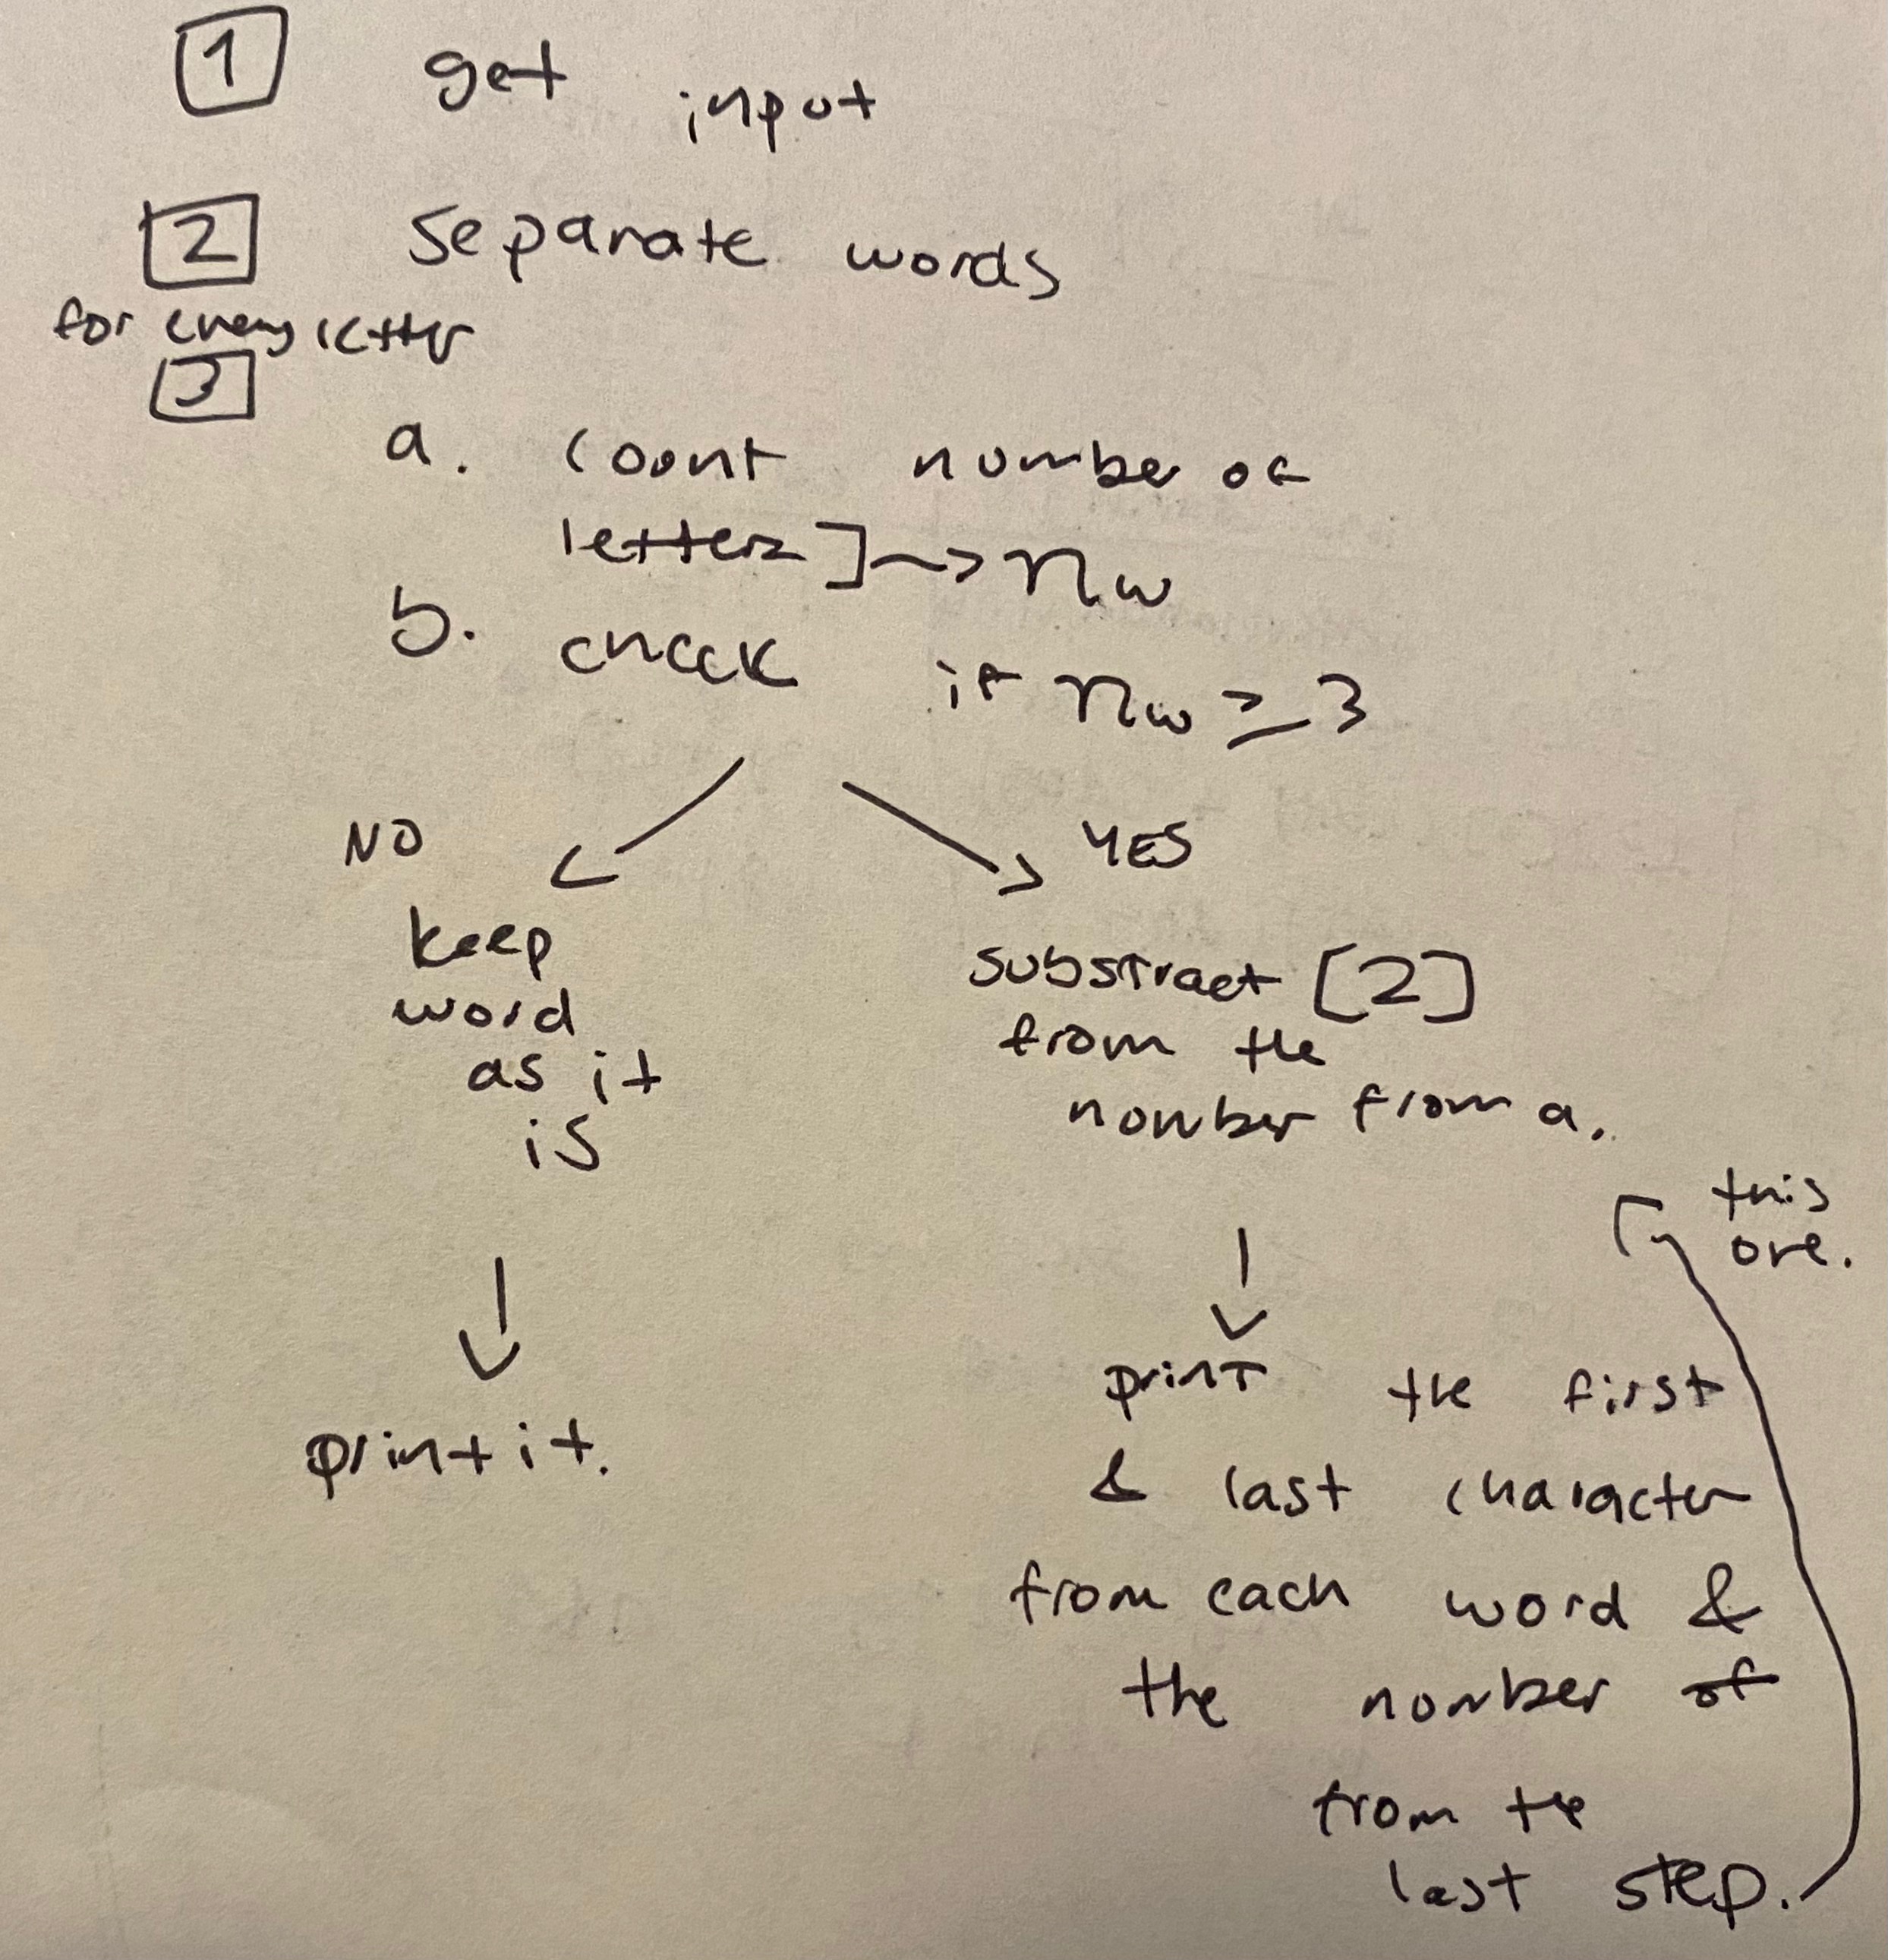 1 get input
2 separate words
for every letter
3
a. count number of
letters ] → nw
b. check if nw ≥ 3
NO
keep
word
as it
is
print it.
YES
substract [2]
from the
number from a.
this
one.
print the first
& last character
from each word &
the number of
from the
last step.